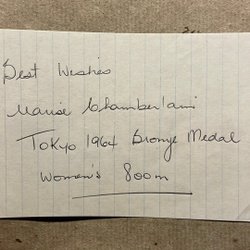 Best Wishes
Marise Chamberlain
Tokyo 1964 Bronze Medal
Women's 800m